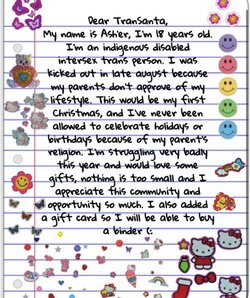 Dear TranSanta,
My name is Ash'er, I'm 18 years old.
I'm an indigenous disabled
intersex trans person. I was
kicked out in late august because
my parents don't approve of my
lifestyle. This would be my first
Christmas, and I've never been
allowed to celebrate holidays or
birthdays because of my parent's
religion. I'm struggling very badly
this year and would love some
gifts, nothing is too small and I
appreciate this community and
opportunity so much. I also added
a gift card so I will be able to buy
a binder (: